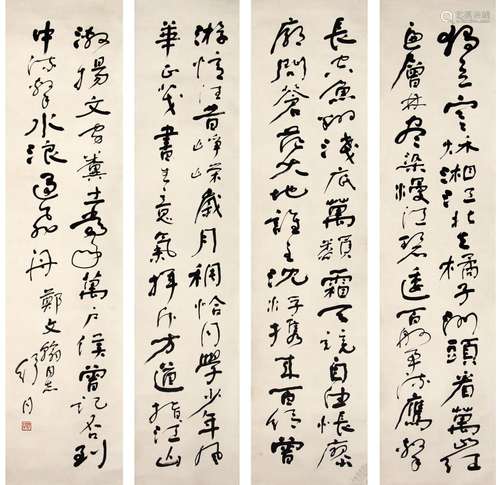 獨立寒秋湘江北去橘子洲頭看萬山紅
遍層林盡染漫江碧透百舸爭流鷹擊
長空魚翔淺底萬類霜天競自由悵寥
廓問蒼茫大地誰主沉浮攜來百侶曾
游憶往昔崢嶸歲月稠恰同學少年風
華正茂書生意氣揮斥方遒指江山
激揚文字糞土當年萬戶侯曾記否到
中流擊水浪遏飛舟 鄭文翰同志
舒同